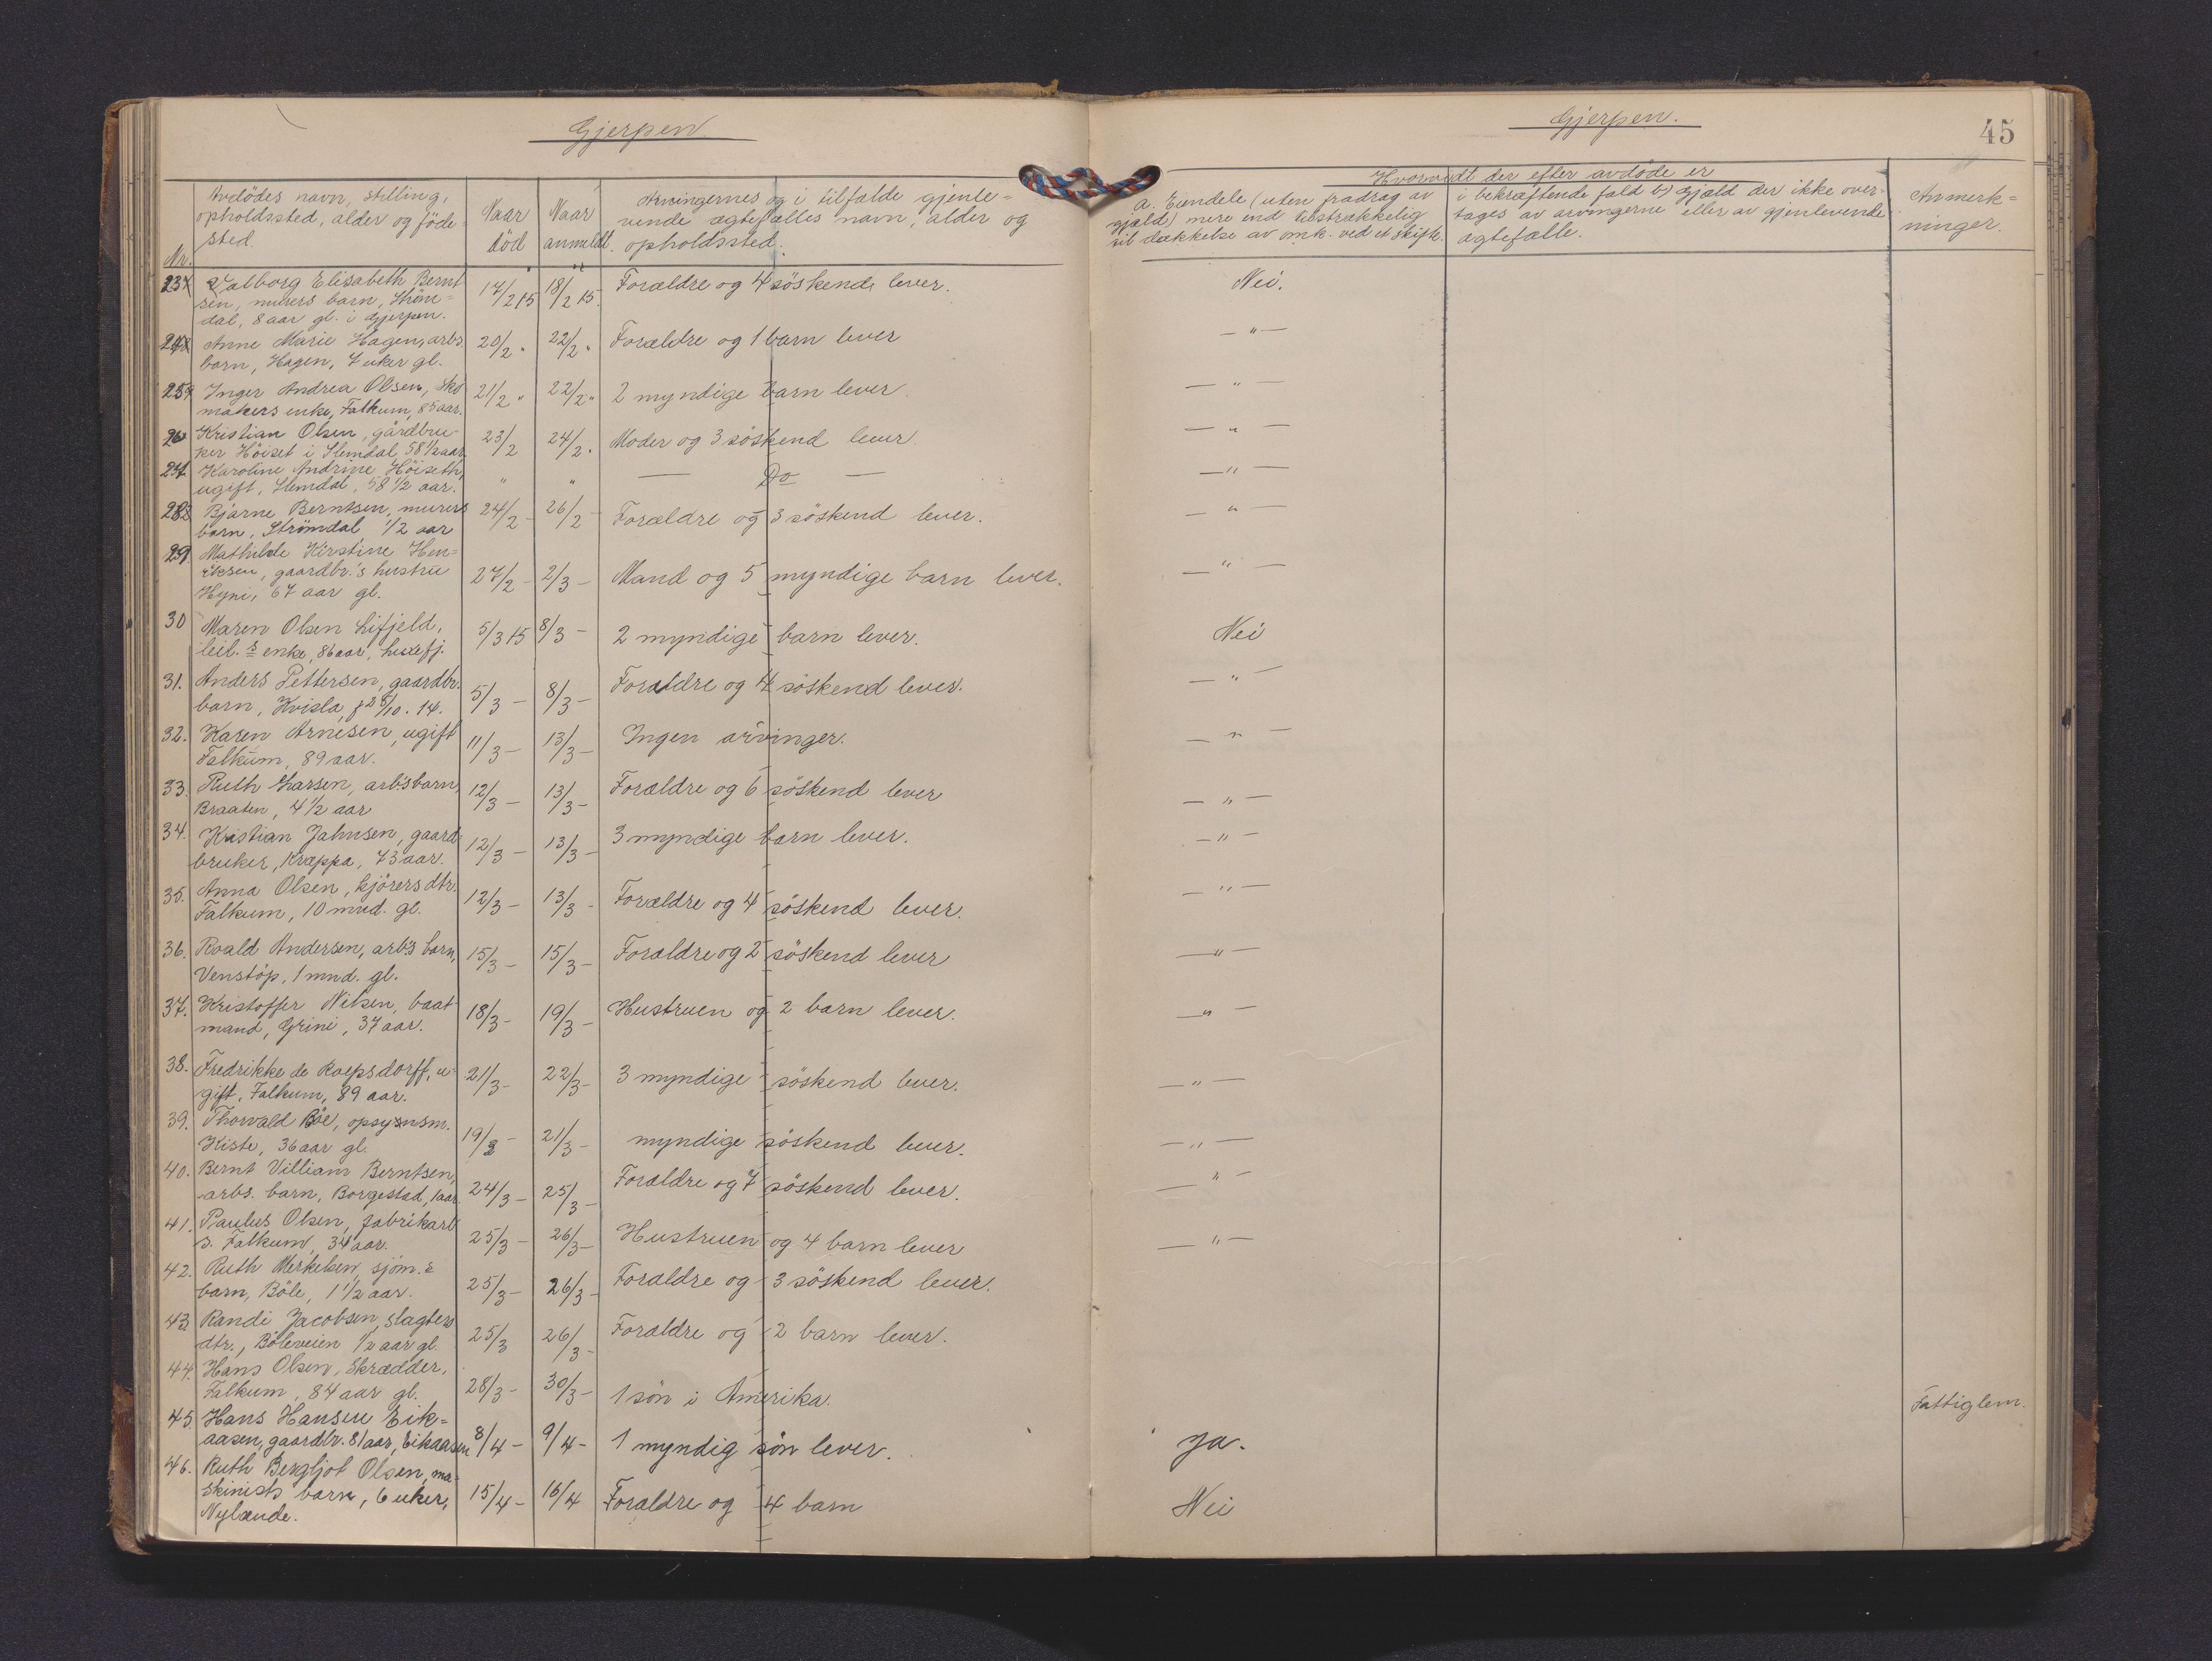 Gjerpen.
Gjerpen.
45
Nr.
Avdödes navn, stilling,
opholdssted, alder og föde-
sted.
Naar
död
Naar
anmeldt.
Arvingernes og i tilfælde gjenle-
vende ægtefælles navn, alder og
opholdssted.
Hvorvidt der efter avdöde er
A. Eiendele (uten fradrag av
gjæld) mere end tilstrækkelig
til dækkelse av omk. ved et skifte.
i bekræftende fald b) Gjæld der ikke over-
tages av arvingerne eller av gjenlevende
ægtefælle.
Anmerk-
ninger.
23 Valborg Elisabeth Bernt
sen, murers barn, Ström-
dal, 8 aar gl. i Gjerpen.
17/2 15 18/2 15. Forældre og 4 söskende lever. Nei.
24 Anne Marie Hagen, arbs
barn, Hagen, 7 uker gl.
20/2 " 22/2 " Forældre og 1 barn lever — " —
25 Inger Andrea Olsen, sko
makers enke, Falkum, 85 aar.
21/2 " 22/2 " 2 myndige barn lever. — " —
26 Kristian Olsen, gårdbru-
ker Höiset i Slemdal 58 1/2 aar
23/2 24/2 " Moder og 3 söskend lever. — " —
27. Karoline Andrine Höiseth,
ugift, Slemdal, 58 1/2 aar.
" " — Do — — " —
28 Bjarne Berntsen, murers
barn, Strömdal 1/2 aar
24/2 - 26/2 - Forældre og 3 söskend lever. — " —
29 Mathilde Kirstine Hen-
riksen, gaardbr.'s hustru
Hyni, 67 aar gl.
27/2 - 2/3 - Mand og 5 myndige barn lever. — " —
30 Maren Olsen Lifjeld,
leil.s enke, 86 aar,
5/3 15 8/3 - 2 myndige barn lever. Nei
31. Anders Pettersen, gaardbr.
barn, Kvisla, f 25/10. 14.
5/3 - 8/3 - Forældre og 4 söskend lever. — " —
32. Karen Arnesen, ugift
Falkum, 89 aar.
11/3 - 13/3 - Ingen arvinger. — " —
33. Ruth Larsen, arbs barn,
Braaten, 4 1/2 aar
12/3 - 13/3 - Forældre og 6 söskend lever — " —
34. Kristian Jahnsen, gaard
bruker, Kræppa, 73 aar.
12/3 - 13/3 - 3 myndige barn lever. — " —
35. Anna Olsen, kjörers dtr.
Falkum, 10 mnd. gl.
12/3 - 13/3 - Forældre og 4 söskend lever. — " —
36. Roald Andersen, arb's barn,
Venstöp, 1 mnd. gl.
15/3 - 15/3 - Forældre og 2 söskend lever — " —
37. Kristoffer Nilsen, baat
mand, Grini, 37 aar.
18/3 - 19/3 - Hustruen og 2 barn lever. — " —
38. Fredrikke de Roepsdorff, u-
gift, Falkum, 89 aar.
21/3 - 22/3 - 3 myndige söskend lever. — " —
39. Thorvald Böe, opsynsm.
Kiste, 36 aar gl.
19/3 - 21/3 - myndige söskend lever. — " —
40. Bernt Villiam Berntsen,
arbs. barn, Borgestad, 1 aar
24/3 - 25/3 - Forældre og 7 söskend lever. — " —
41. Paulus Olsen, fabrikarb
s. Falkum, 34 aar.
25/3 - 26/3 - Hustruen og 4 barn lever — " —
42. Ruth Merkelsen, sjöm.s
barn, Böle, 1 1/2 aar.
25/3 - 26/3 - Forældre og 3 söskend lever.
43 Randi Jacobsen, slagters
dtr., Böleveien 1/2 aar gl.
25/3 26/3 - Forældre og 2 barn lever.
44. Hans Olsen, Skrædder,
Falkum, 84 aar gl.
28/3 - 30/3 - 1 sön i Amerika. Fattiglem.
45. Hans Hansen Eik-
aasen, gaardbr. 81 aar, Eikaasen
8/4 - 9/4 - 1 myndig sön lever. Ja.
46. Ruth Bergljot Olsen, ma-
skinists barn, 6 uker,
Nylænde.
15/4 - 16/4 Forældre og 4 barn Nei